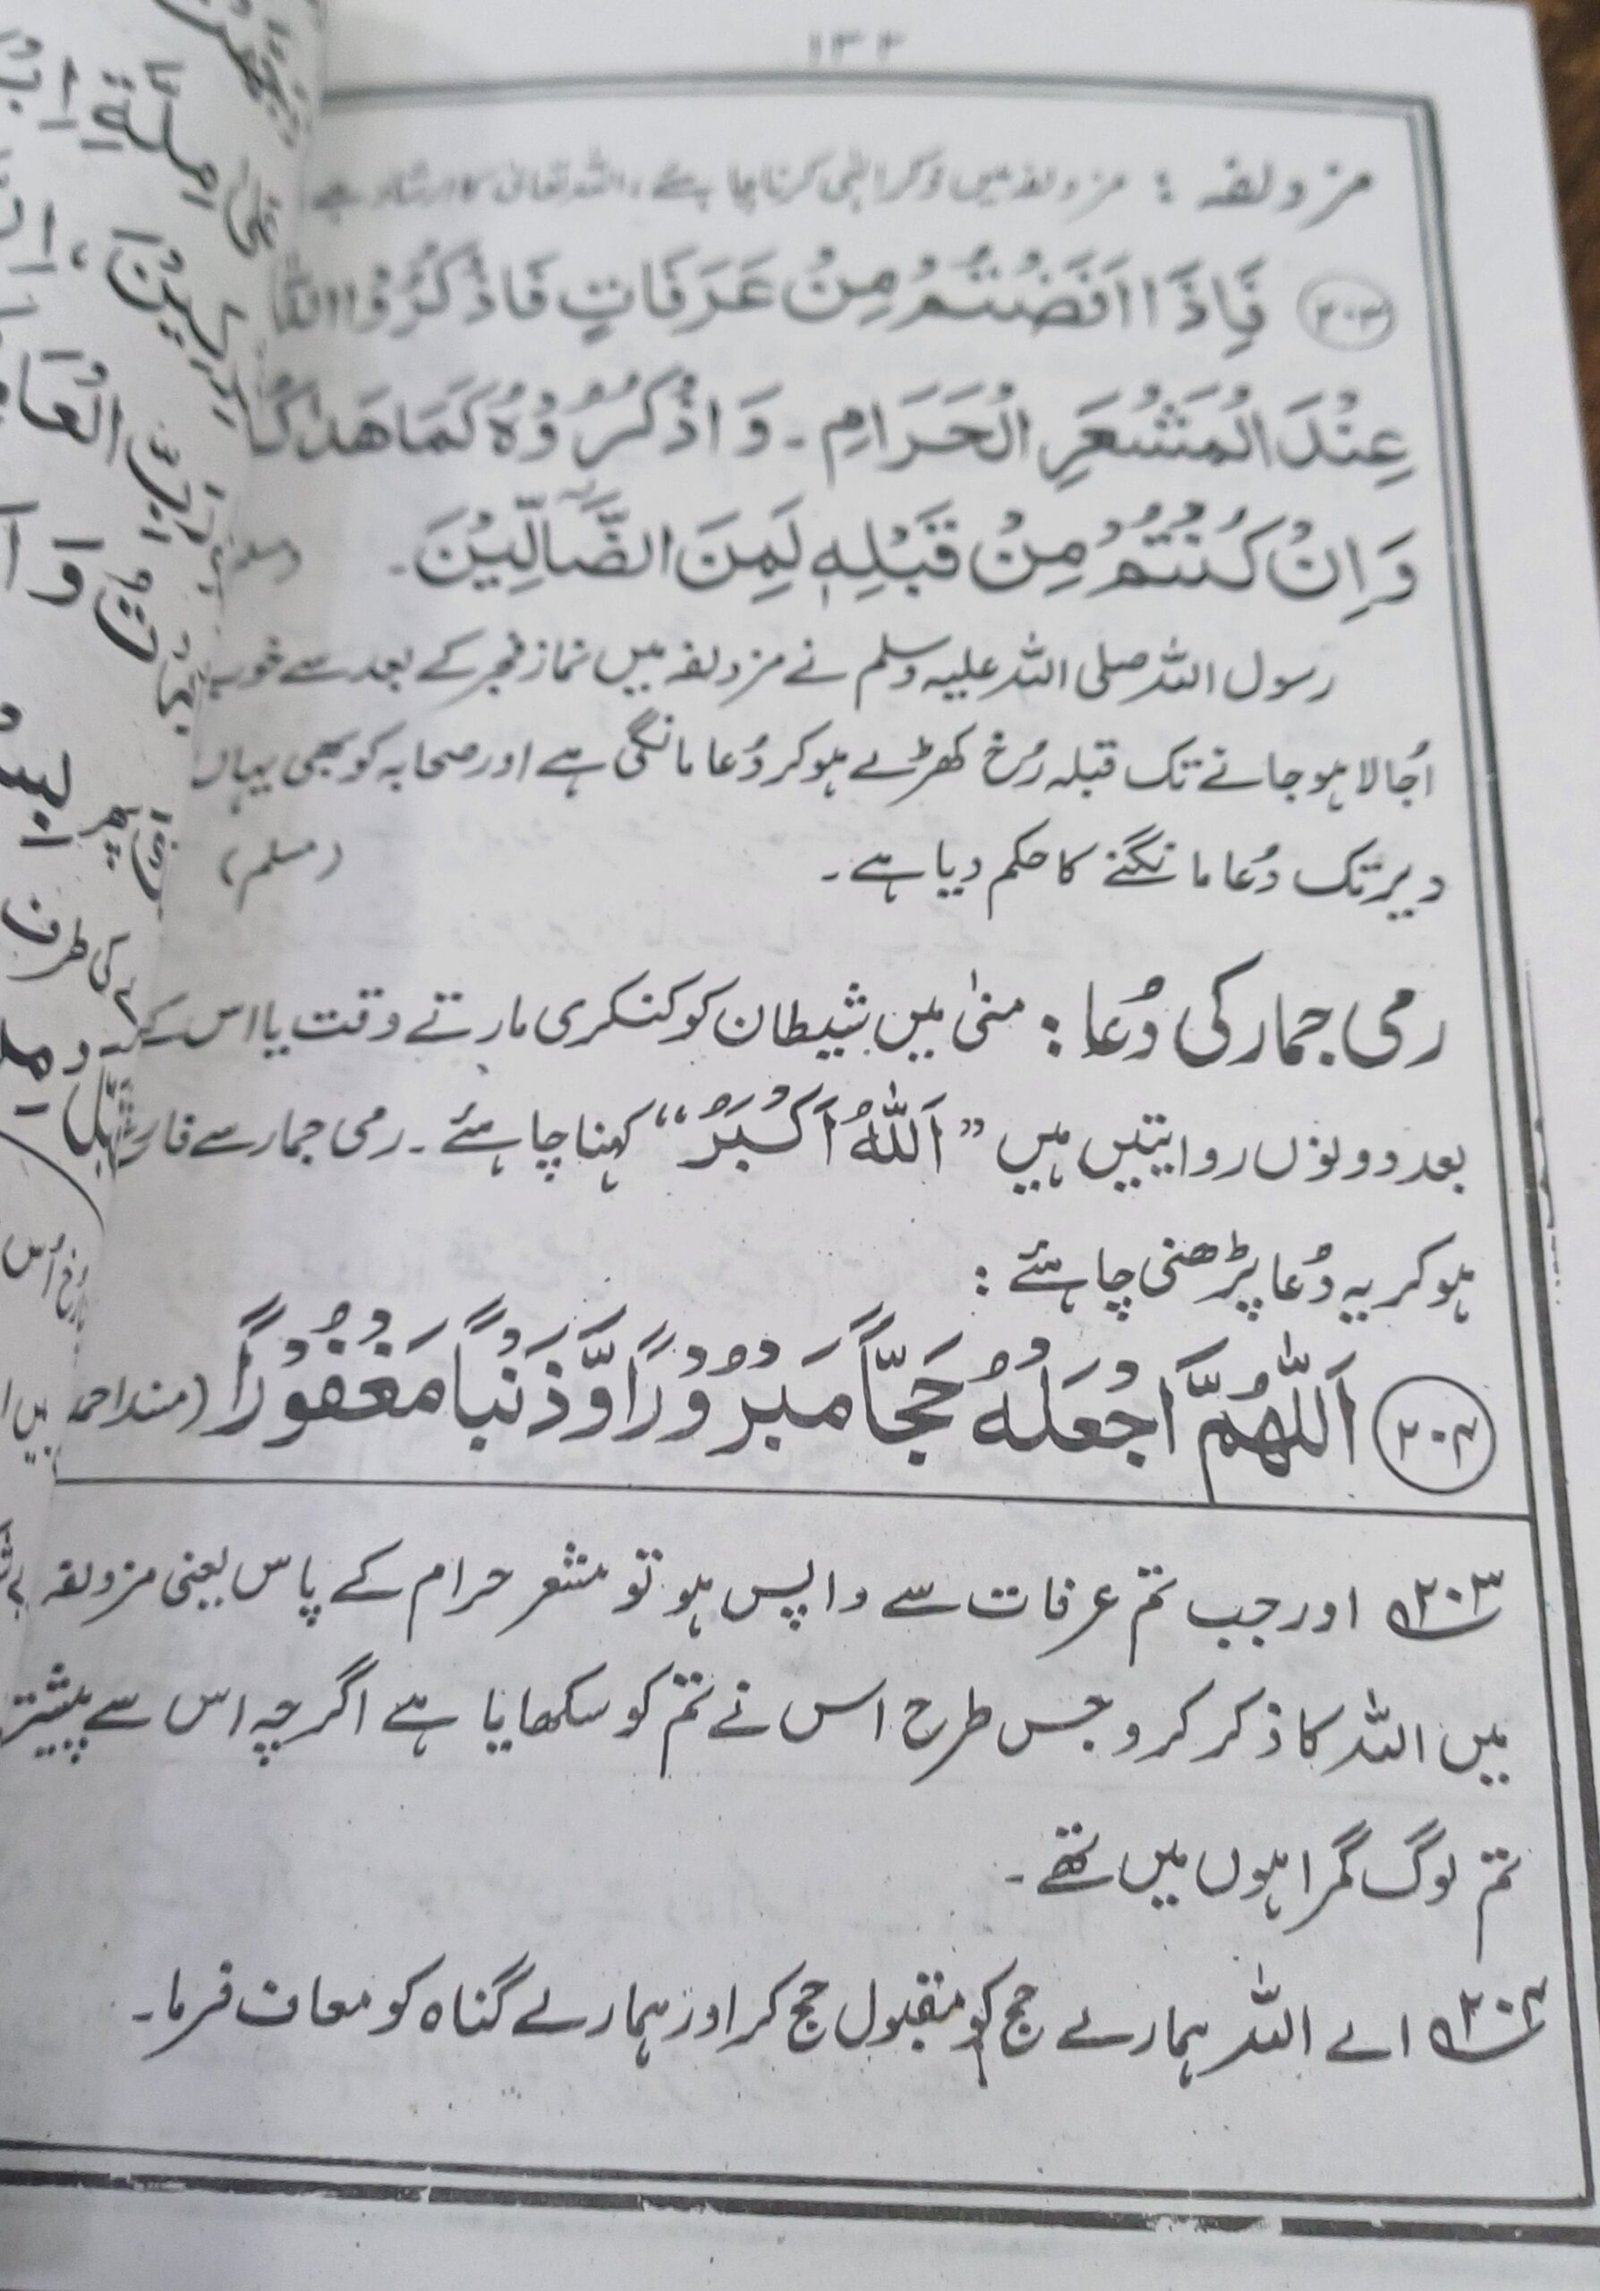 ۱۳۴
مزدلفہ : مزدلفہ میں ذکر الٰہی کرنا چاہئے، اللہ تعالیٰ کا ارشاد ہے
۲۰۳ فَاِذَا اَفَضْتُمْ مِنْ عَرَفَاتٍ فَاذْكُرُوا اللّٰهَ
عِنْدَ الْمَشْعَرِ الْحَرَامِ - وَاذْكُرُوْهُ كَمَا هَدٰىكُ
وَاِنْ كُنْتُمْ مِنْ قَبْلِهٖ لَمِنَ الضَّآلِّيْنَ -
رسول اللہ صلی اللہ علیہ وسلم نے مزدلفہ میں نماز فجر کے بعد سے خوب
اُجالا ہو جانے تک قبلہ رُخ کھڑے ہو کر دُعا مانگی ہے اور صحابہ کو بھی یہاں
دیر تک دُعا مانگنے کا حکم دیا ہے۔ (مسلم)
رمی جمار کی دُعا : منیٰ میں شیطان کو کنکری مارتے وقت یا اس کے
بعد دونوں روایتیں ہیں ”اَللّٰهُ اَكْبَرُ“ کہنا چاہئے۔ رمی جمار سے فارغ
ہو کر یہ دُعا پڑھنی چاہئے :
۲۰۴ اَللّٰهُمَّ اجْعَلْهُ حَجًّا مَبْرُوْرًا وَّذَنْبًا مَغْفُوْرًا (مسند احمد
۲۰۳ اور جب تم عرفات سے واپس ہو تو مشعر حرام کے پاس یعنی مزدلفہ
میں اللہ کا ذکر کرو جس طرح اس نے تم کو سکھایا ہے اگرچہ اس سے پیشتر
تم لوگ گمراہوں میں تھے۔
۲۰۴ اے اللہ ہمارے حج کو مقبول حج کر اور ہمارے گناہ کو معاف فرما۔